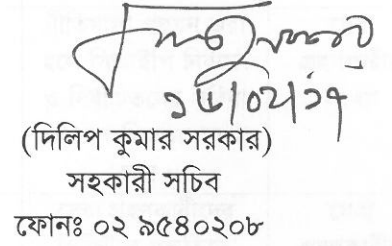 (দিলিপ কুমার সরকার)
সহকারী সচিব
ফোনঃ ০২ ৯৫৪০২০৮